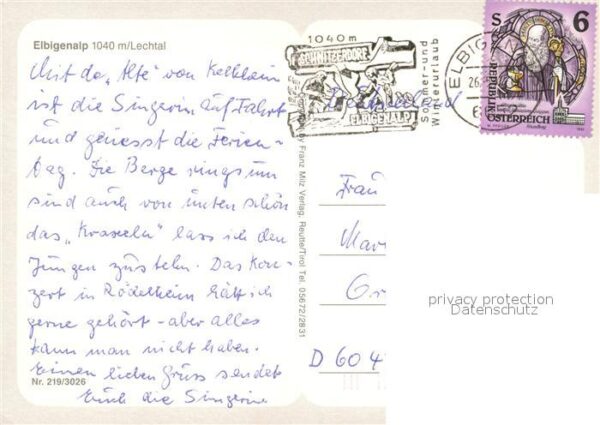 Elbigenalp 1040 m/Lechtal
Mit de „Alte" von Kelkheim
ist die Singerin auf Fahrt
und geniesst die Ferien-
tag. Die Berge rings um
sind auch von unten schön
das „Kraxeln" lass ich den
Jungen zustehn. Das Kon-
zert in Rödelheim hätt ich
gerne gehört - aber alles
kann man nicht haben.
Einen lieben Gruss sendet
Euch die Singerin
Nr. 219/3026
by Franz Milz Verlag, Reutte/Tirol Tel. 05672/2831
1040m
SCHNITZERDORF
ELBIGENALP
Sommer-und
Winterurlaub
ELBIGEN
26.
6
S 6
REPUBLIK
ÖSTERREICH
Deutschland
Frau
Mar
Gr
D 604
privacy protection
Datenschutz